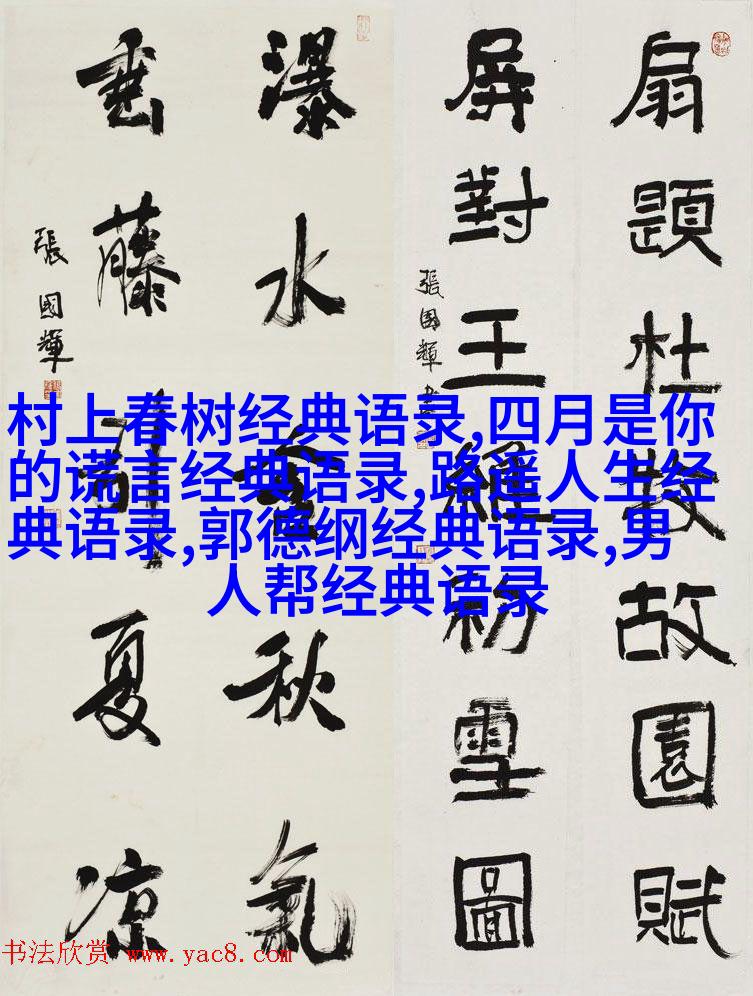 扇題杜牧故園賦
屏對王維初雪圖
張國輝書
瀑水秋氣
垂藤夏涼
張國輝
村上春树经典语录,四月是你
的谎言经典语录,路遥人生经
典语录,郭德纲经典语录,男
人帮经典语录
书法欣赏 www.yac8.com